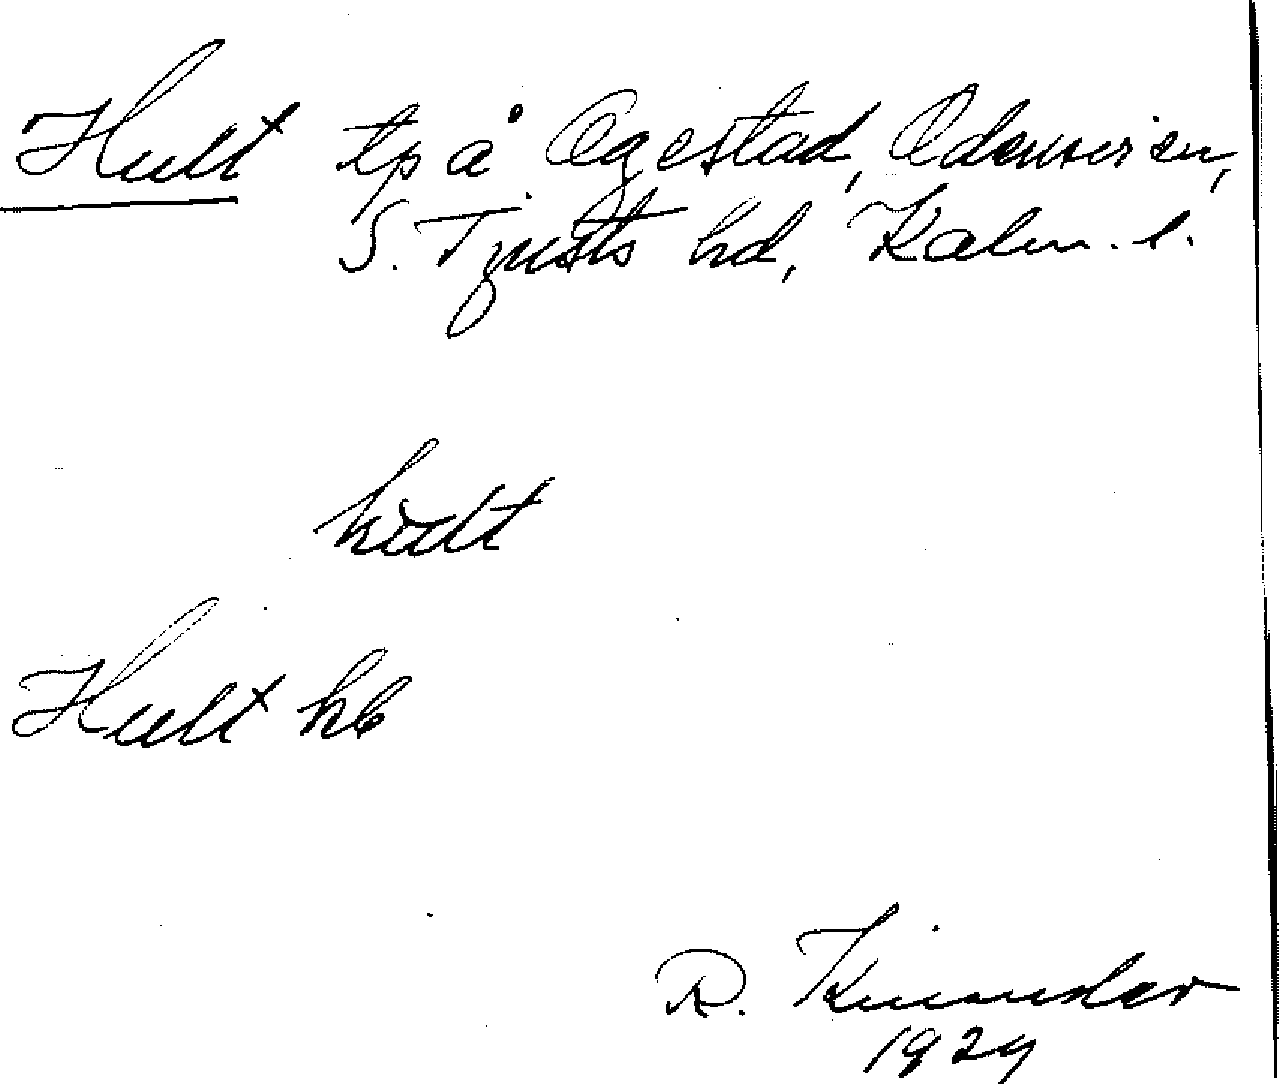 Hult tp å Ogestad, Odensvi sn,
S. Tjusts hd, Kalm. l.
hult
Hult kb
R. Kinander
1924